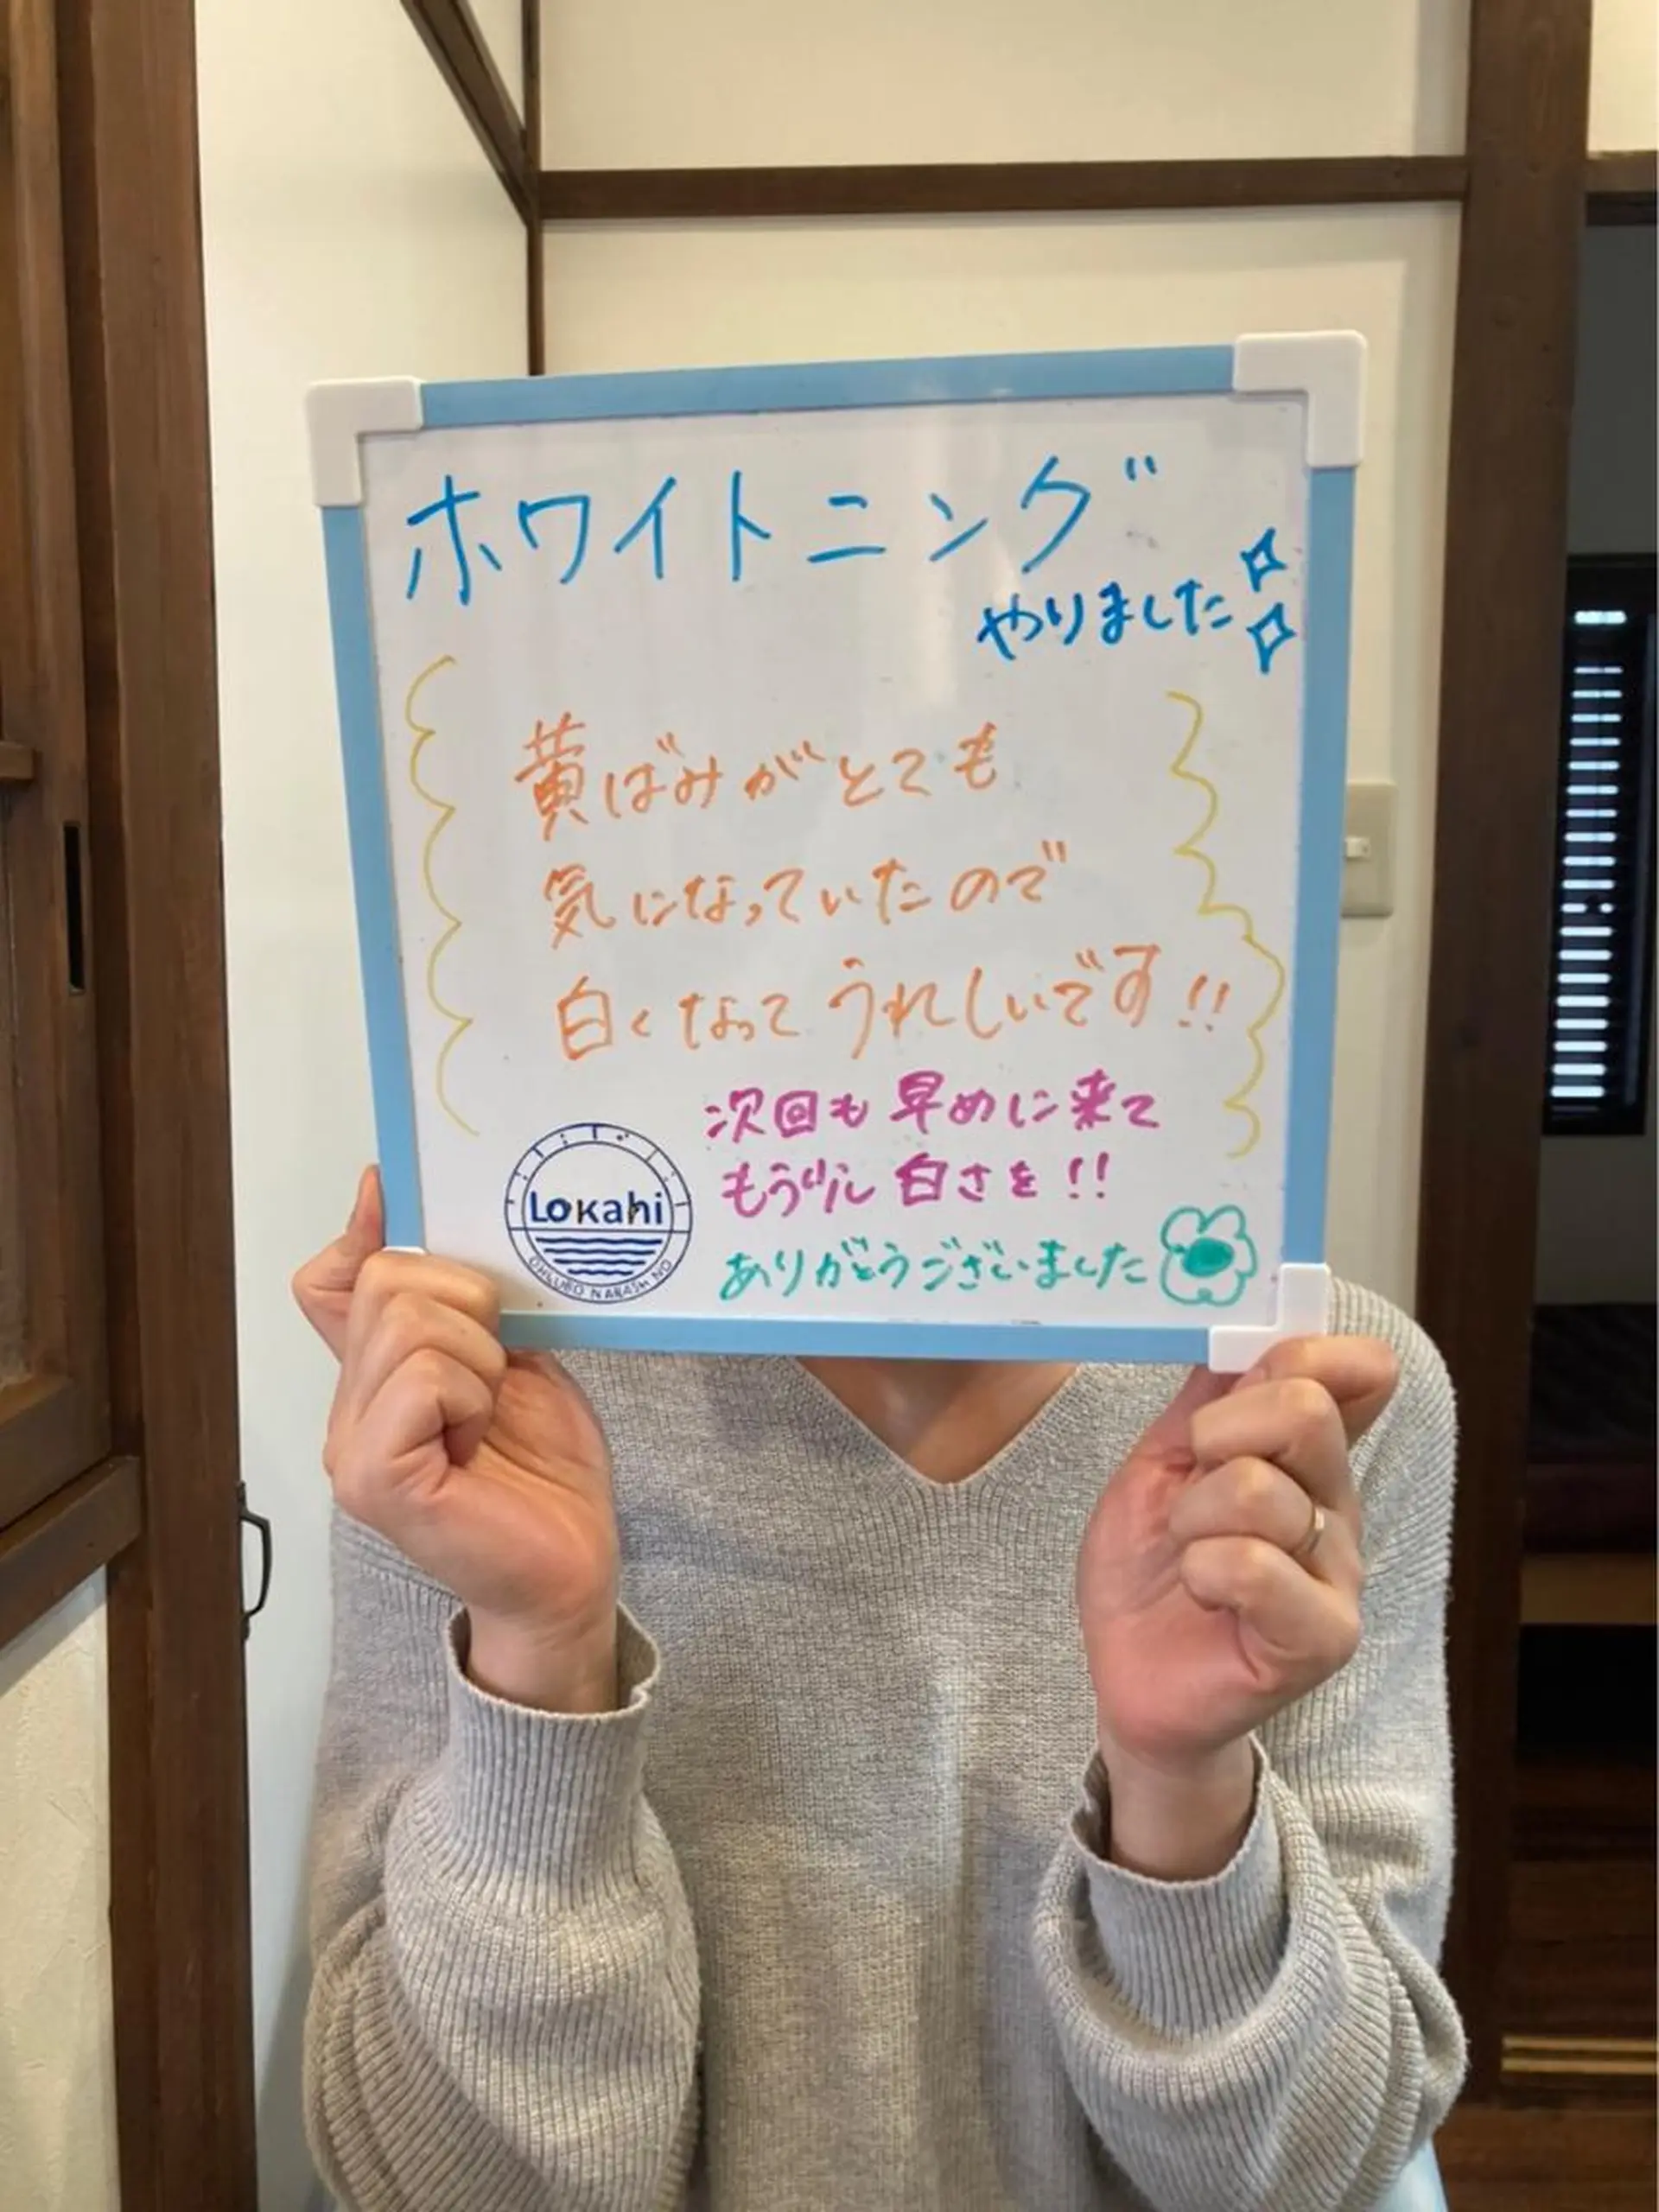 ホワイトニング
やりました
黄ばみがとても
気になっていたので
白くなってうれしいです!!
次回も早めに来て
もう少し白さを!!
ありがとうございました
Lokahi